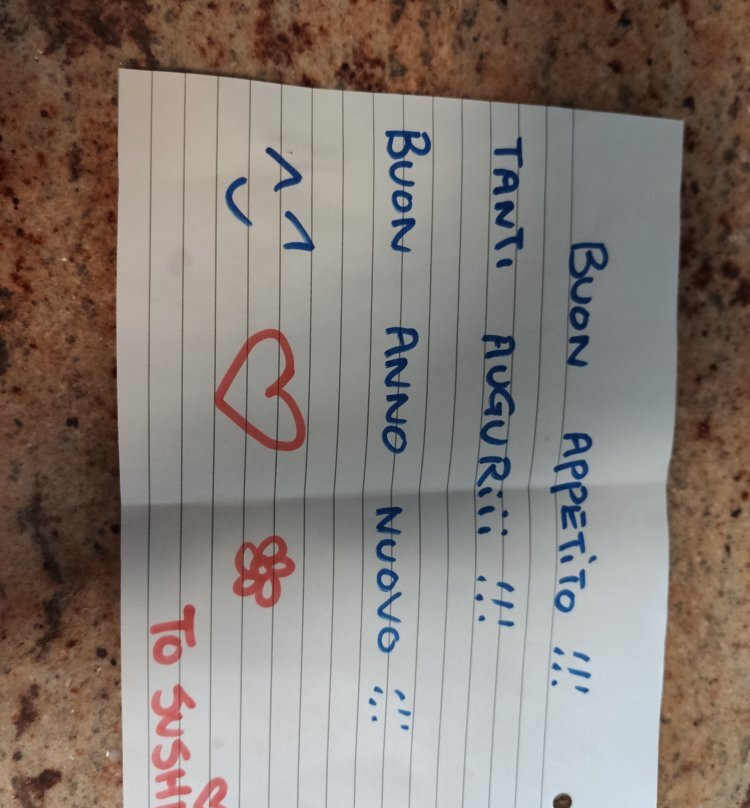 BUON APPETITO !!!
TANTI AUGURiii !!!
BUON ANNO NUOVO !!!
TO SUSHI